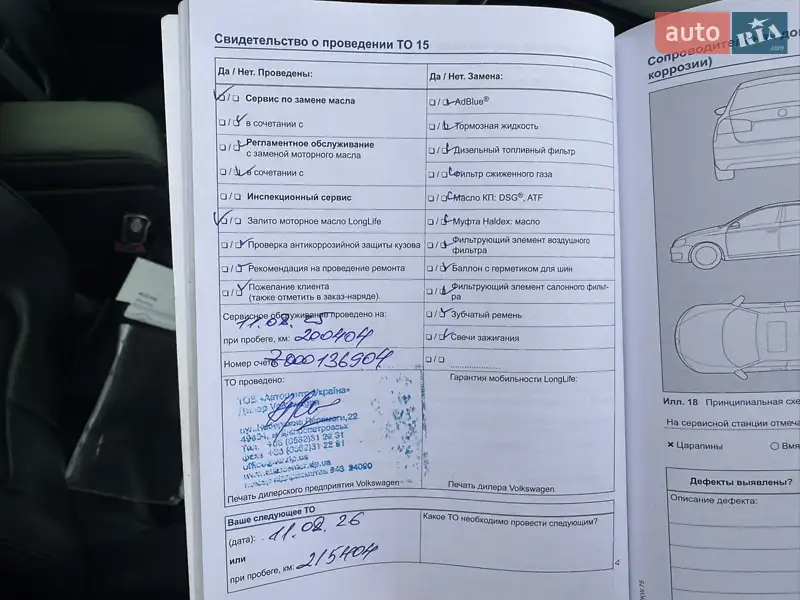 auto RIA .com
Свидетельство о проведении ТО 15
Да / Нет. Проведены:
Да / Нет. Замена:
Сервис по замене масла
AdBlue®
в сочетании с
Тормозная жидкость
Регламентное обслуживание
с заменой моторного масла
Дизельный топливный фильтр
в сочетании с
Фильтр сжиженного газа
Инспекционный сервис
Масло КП: DSG®, ATF
Залито моторное масло LongLife
Муфта Haldex: масло
Проверка антикоррозийной защиты кузова
Фильтрующий элемент воздушного
фильтра
Рекомендация на проведение ремонта
Баллон с герметиком для шин
Пожелание клиента
(также отметить в заказ-наряде).
Фильтрующий элемент салонного фильт-
ра
Сервисное обслуживание проведено на:
11.02.25
Зубчатый ремень
при пробеге, км: 200404
Свечи зажигания
Номер счёта 7000136904
ТО проведено:
Гарантия мобильности LongLife:
ТОВ «Автоцентр-Україна»
Дилер Volkswagen
Печать дилерского предприятия Volkswagen
Печать дилера Volkswagen
Ваше следующее ТО
Какое ТО необходимо провести следующим?
(дата): 11.02.26
или
при пробеге, км: 215404
4
коррозии)
Илл. 18 Принципиальная схе
На сервисной станции отмеча
Царапины
Вмя
Дефекты выявлены?
Описание дефекта: